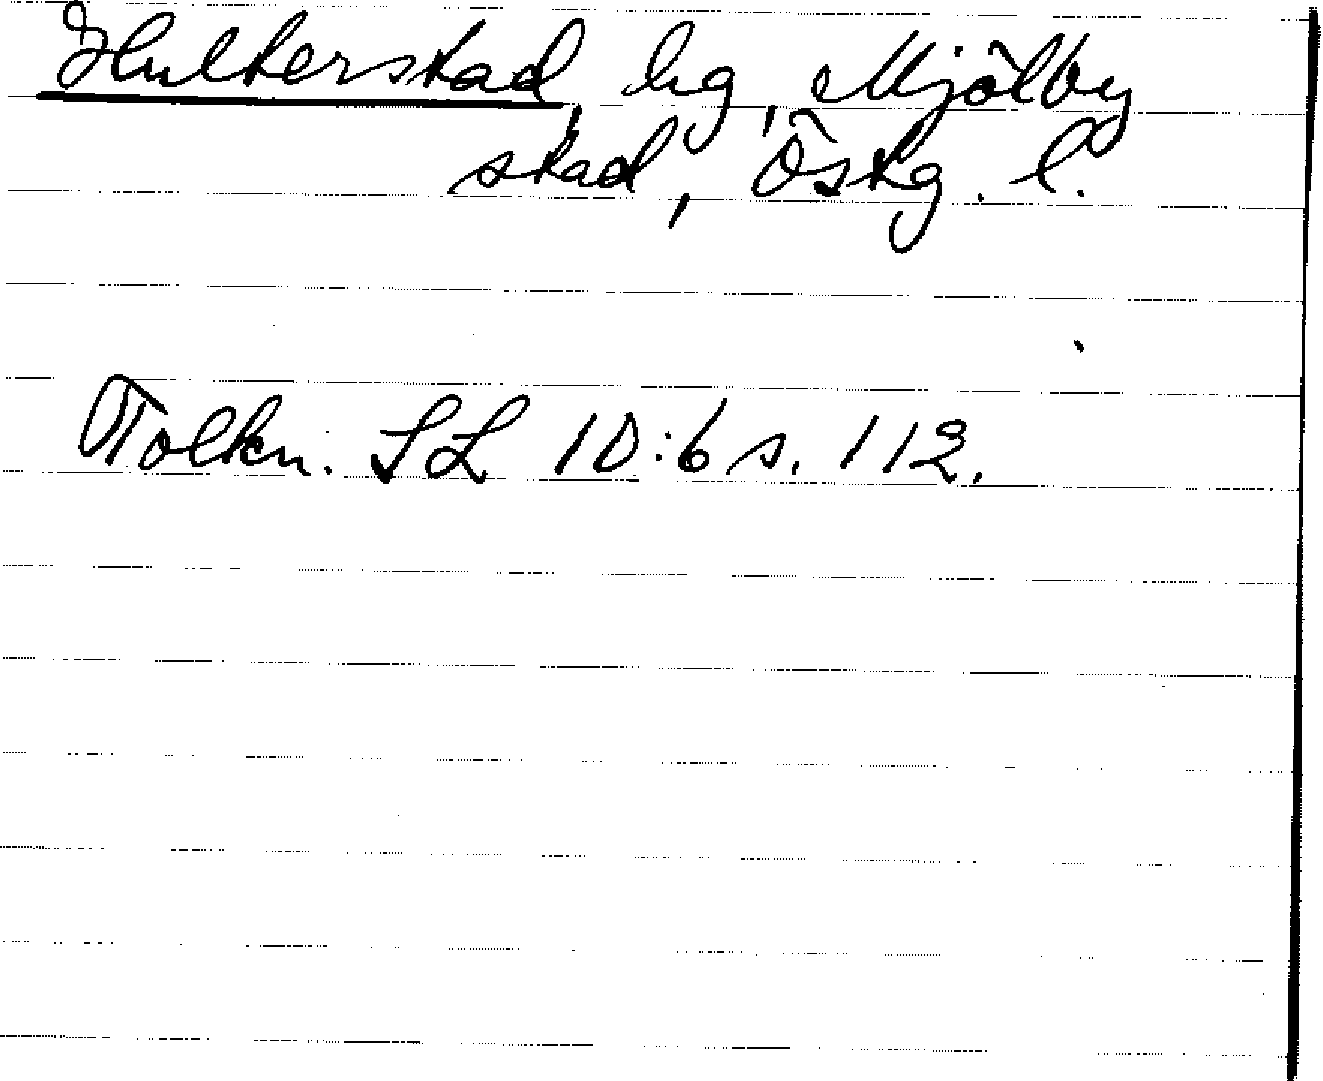 Hulterstad, hg, Mjölby
stad, Östg. l.
Tolkn: SL 10:6 s. 112.